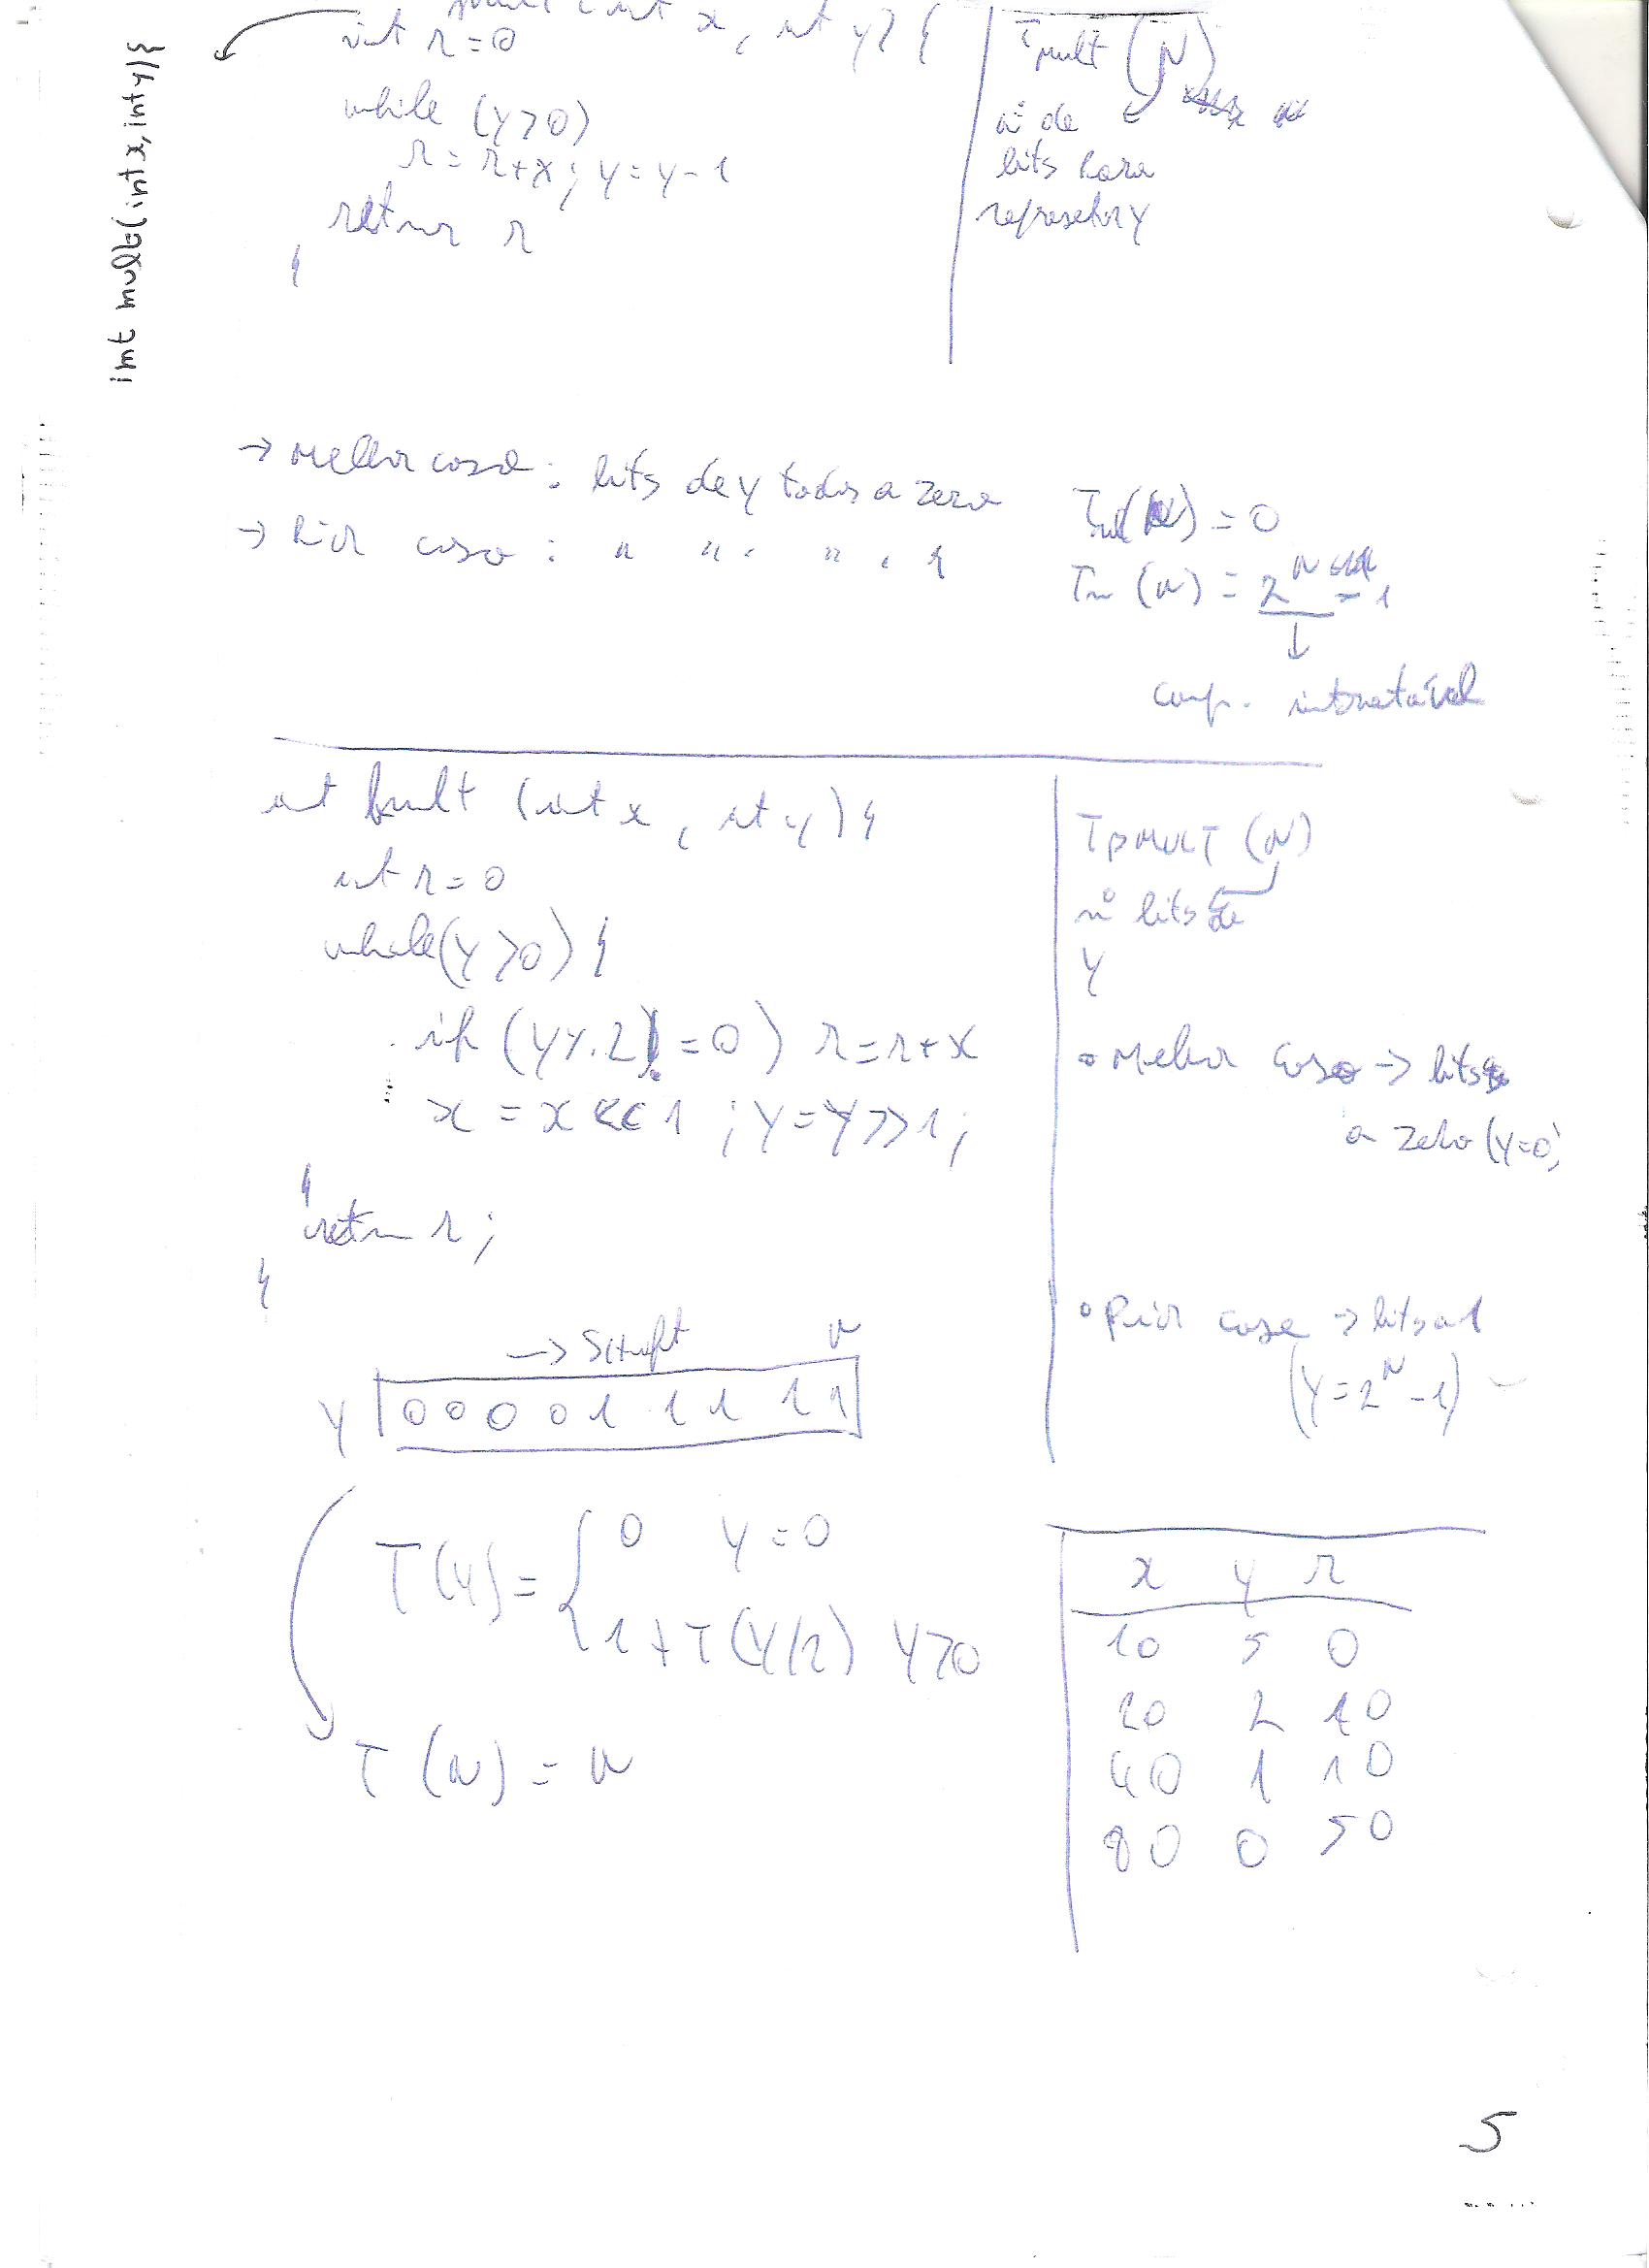 int mult(int x, int y){
int x, int y) {
int r=0
while (y>0)
r=r+x; y=y-1
return r
}
Tmult (N)
nº de
bits para
representar y
→ Melhor caso: bits de y todos a zero
Tm(N) = 0
→ Pior caso: " " " " 1
T (N) = 2^N - 1
↓
comp. intratável
int bmult (int x, int y) {
int r=0
while(y>0) {
if (y%2!=0) r=r+x
x = x<<1 ; y=y>>1;
}
return r;
}
TbMULT (N)
nº bits de
y
• Melhor caso → bits
a zero (y=0)
• Pior caso → bits a 1
(y=2^N -1)
→ Shift
N
y 0 0 0 0 1 1 1 1 1
T(y) = { 0 y=0
1+T(y/2) y>0
T (N) = N
x y r
10 5 0
20 2 10
40 1 10
80 0 50
5